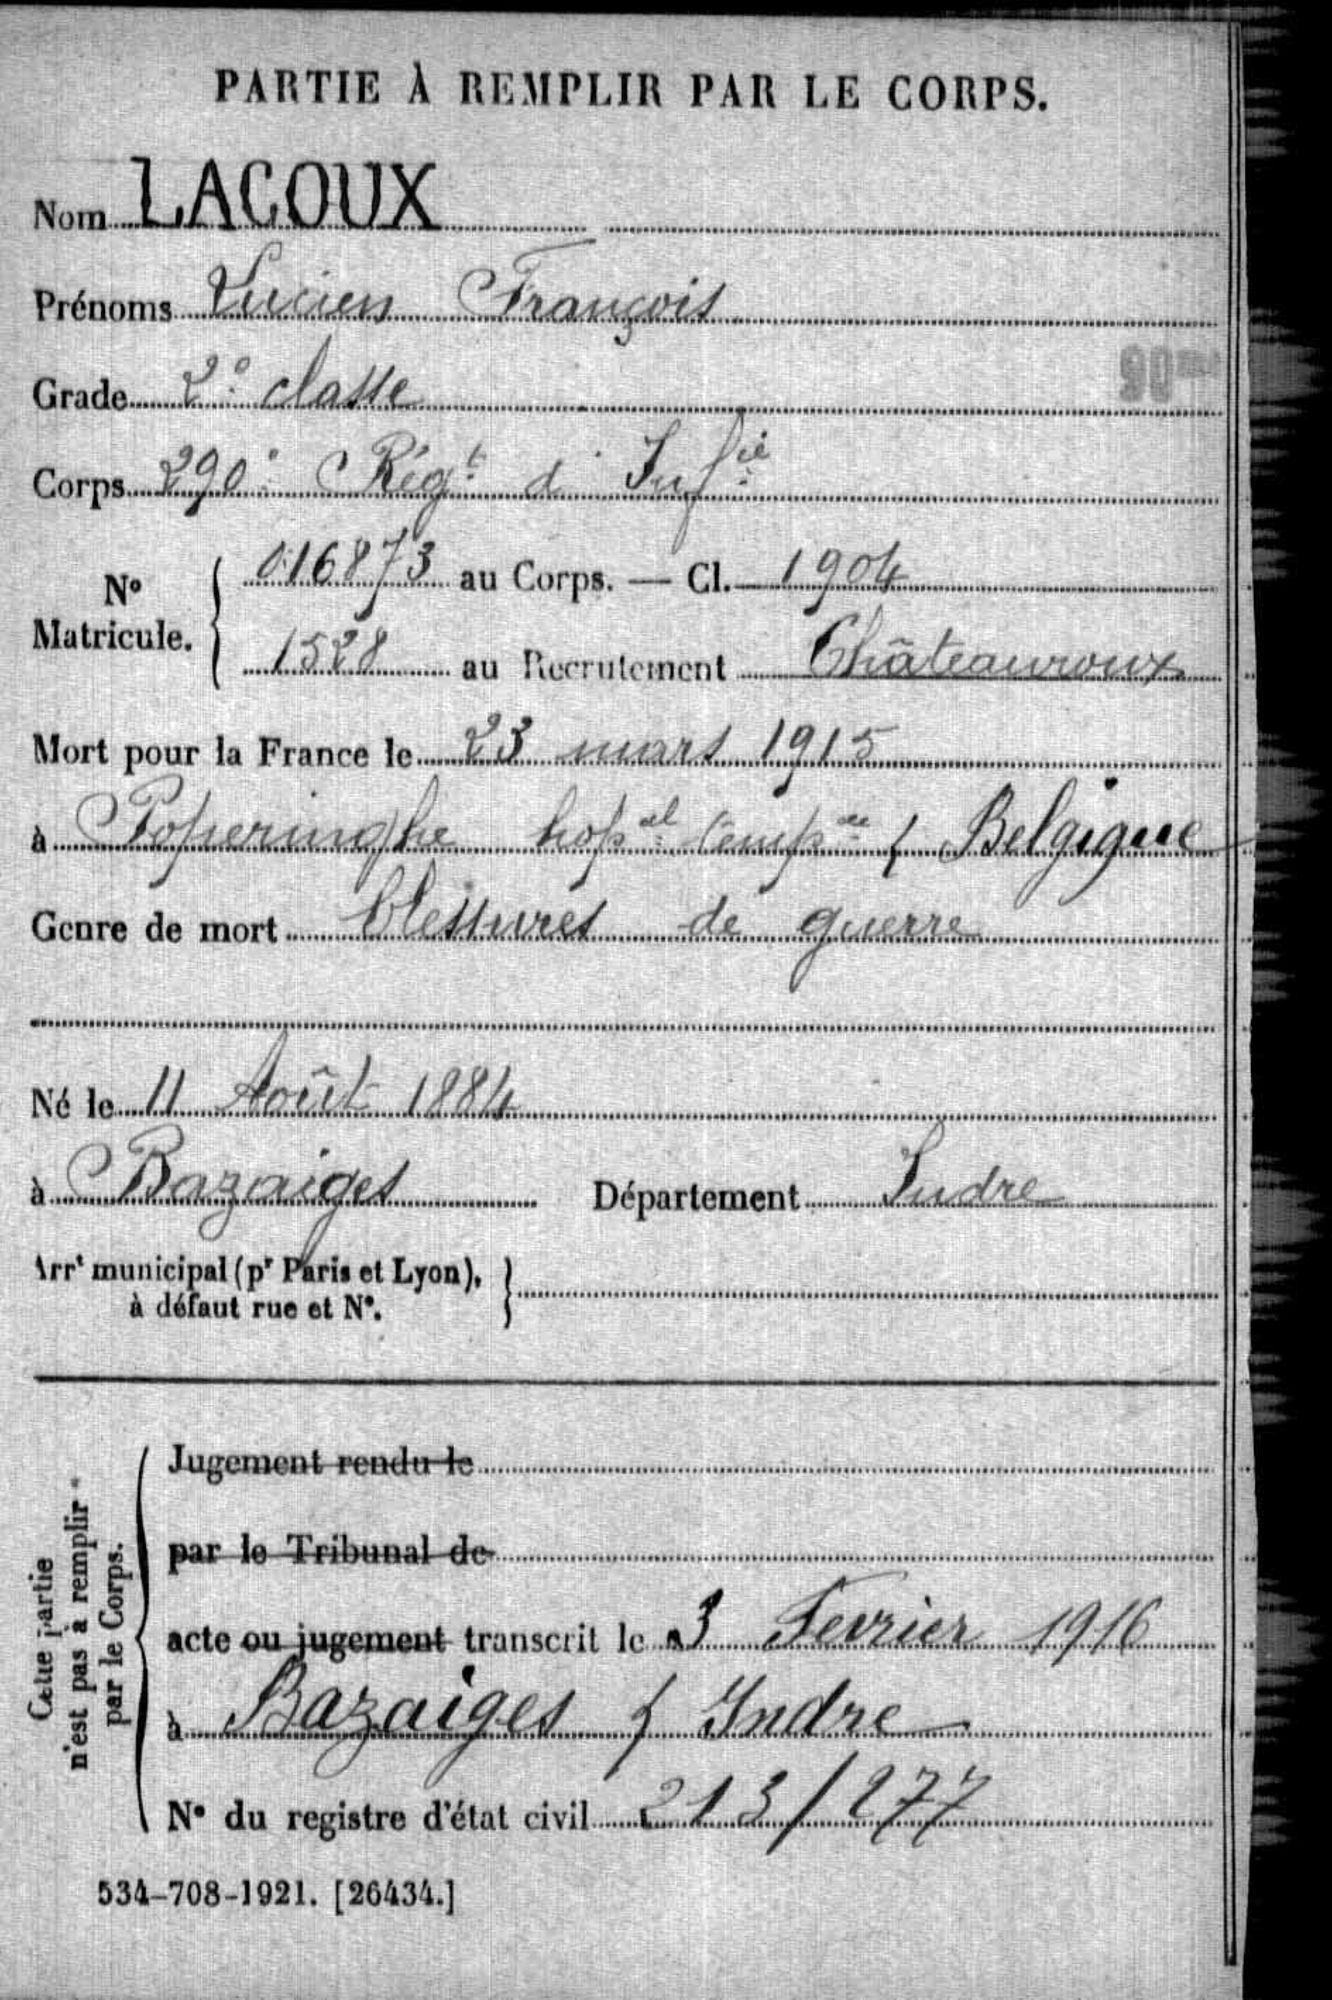 PARTIE À REMPLIR PAR LE CORPS.
Nom LACOUX
Prénoms Lucien François
Grade 2e classe
Corps 290e Régt d'Infie
No Matricule. 016873 au Corps. — Cl. 1904
1528 au Recrutement Châteauroux
Mort pour la France le 23 mars 1915
à Poperinghe hopal tempre / Belgique
Genre de mort blessures de guerre
Né le 11 Août 1884
à Bazaiges Département Indre
Arrt municipal (pr Paris et Lyon), à défaut rue et N°.
Cette partie n'est pas à remplir par le Corps.
Jugement rendu le
par le Tribunal de
acte ou jugement transcrit le 3 Fevrier 1916
à Bazaiges / Indre
N° du registre d'état civil 213/277
534-708-1921. [26434.]